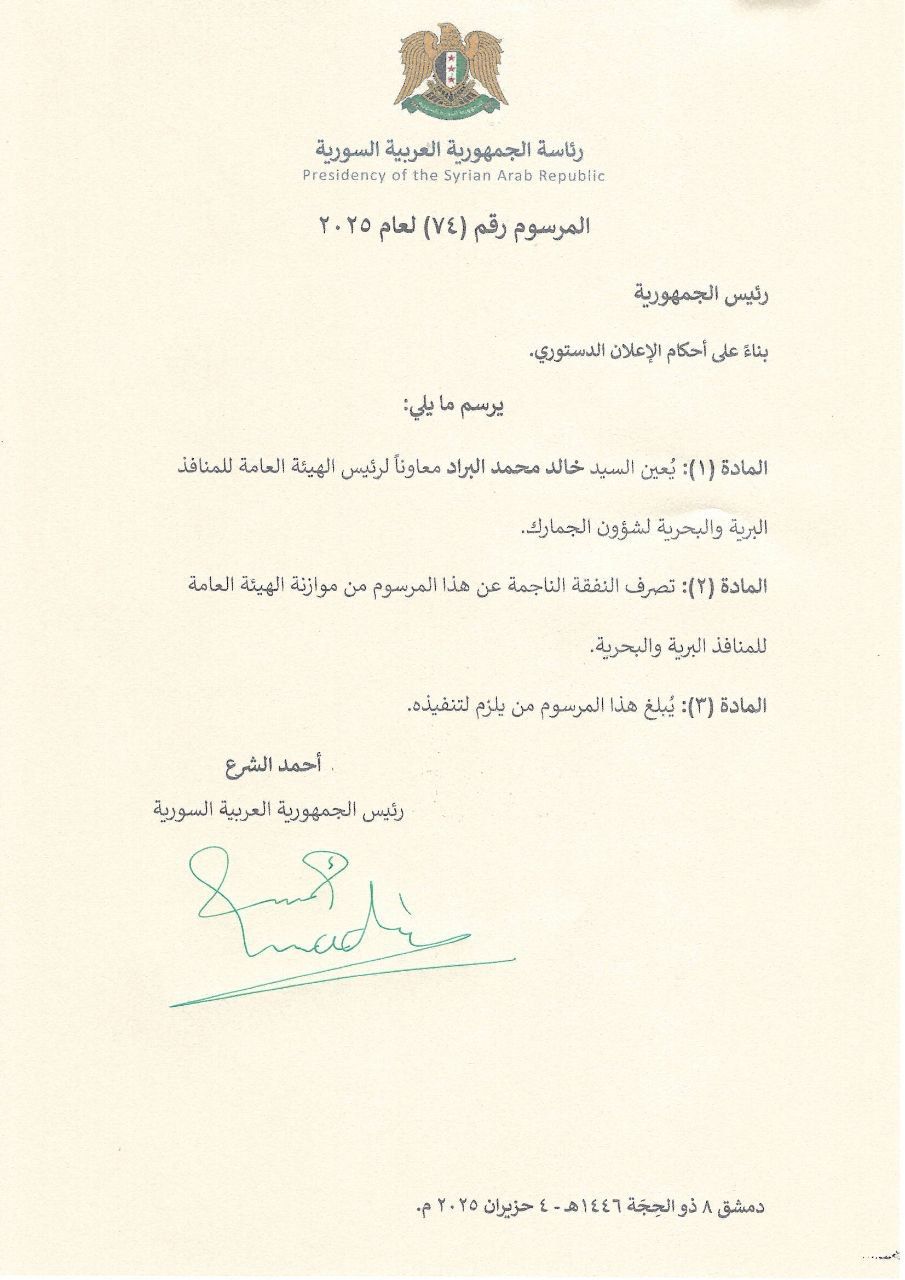 رئاسة الجمهورية العربية السورية
Presidency of the Syrian Arab Republic
المرسوم رقم (٧٤) لعام ٢٠٢٥
رئيس الجمهورية
بناءً على أحكام الإعلان الدستوري.
يرسم ما يلي:
المادة (١): يُعين السيد خالد محمد البراد معاوناً لرئيس الهيئة العامة للمنافذ
البرية والبحرية لشؤون الجمارك.
المادة (٢): تصرف النفقة الناجمة عن هذا المرسوم من موازنة الهيئة العامة
للمنافذ البرية والبحرية.
المادة (٣): يُبلغ هذا المرسوم من يلزم لتنفيذه.
أحمد الشرع
رئيس الجمهورية العربية السورية
دمشق ٨ ذو الحِجَة ١٤٤٦هـ - ٤ حزيران ٢٠٢٥ م.